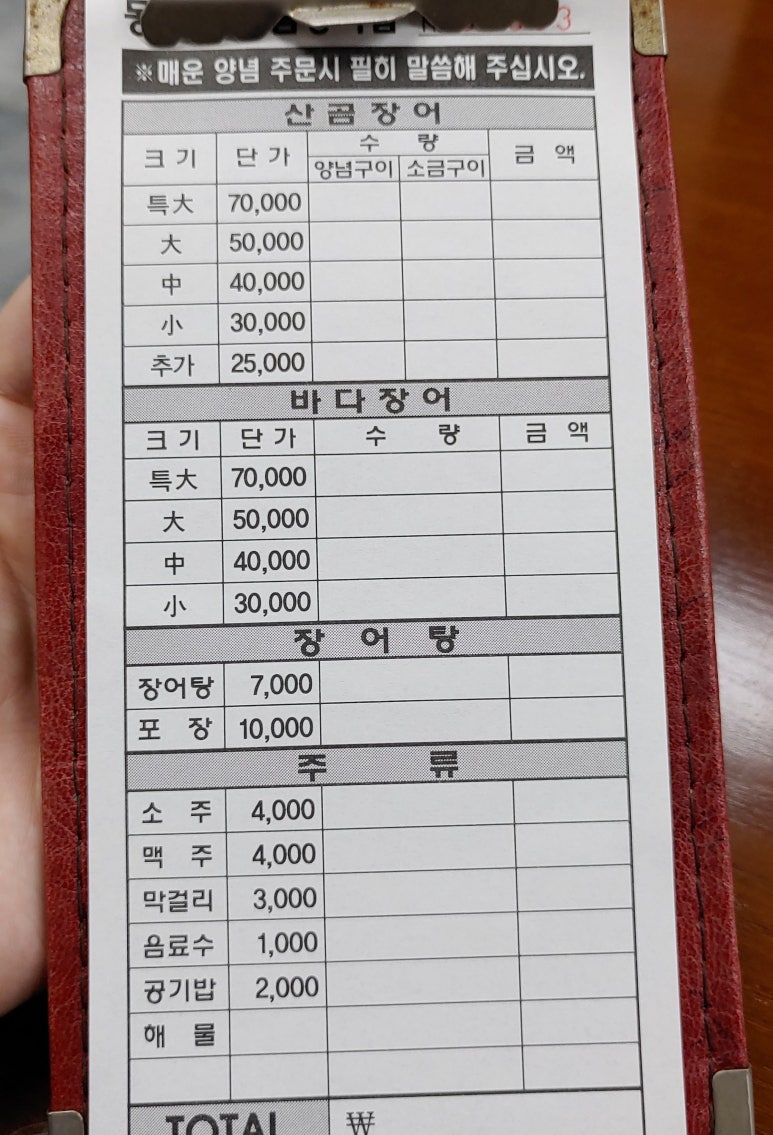 3
※매운 양념 주문시 필히 말씀해 주십시오.
산 곰 장 어
크 기 단 가 수 량 금 액
양념구이 소금구이
특大 70,000
大 50,000
中 40,000
小 30,000
추가 25,000
바 다 장 어
크 기 단 가 수 량 금 액
특大 70,000
大 50,000
中 40,000
小 30,000
장 어 탕
장어탕 7,000
포 장 10,000
주 류
소 주 4,000
맥 주 4,000
막걸리 3,000
음료수 1,000
공기밥 2,000
해 물
TOTAL ₩